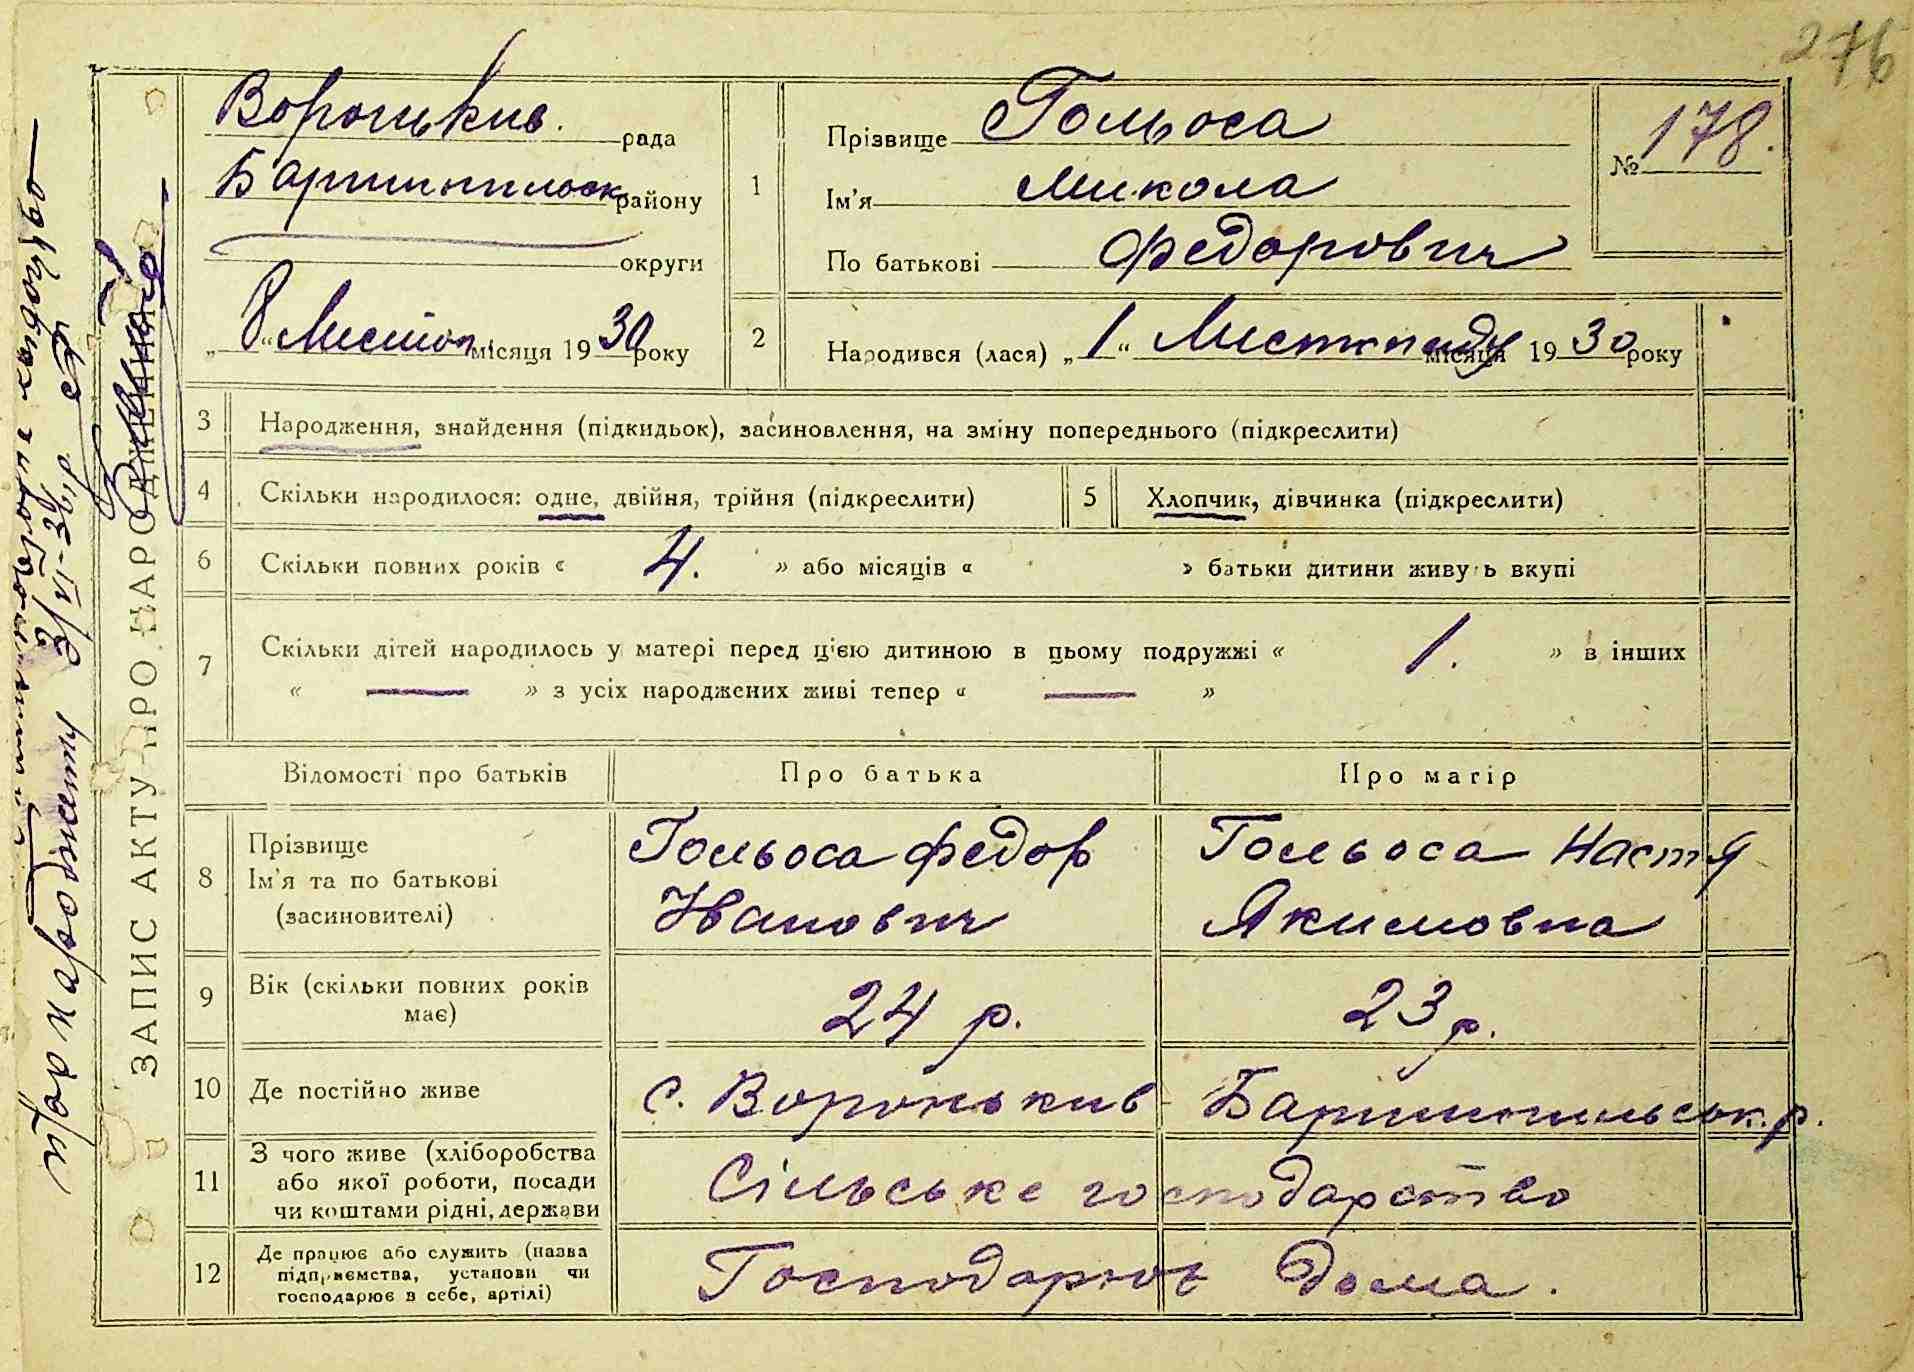 276
Воронькив. рада
Баришпильськ району
округи
„8“ Листоп місяця 1930 року
1
Прізвище Гольоса
Ім'я Микола
По батькові Федорович
№ 178.
2
Народився (лася) „1“ Листопаду місяця 1930 року
3 Народження, знайдення (підкидьок), засиновлення, на зміну попереднього (підкреслити)
4 Скільки народилося: одне, двійня, трійня (підкреслити)
5 Хлопчик, дівчинка (підкреслити)
6 Скільки повних років « 4. » або місяців « » батьки дитини живуть вкупі
7 Скільки дітей народилось у матері перед цією дитиною в цьому подружжі « 1. » в інших
« — » з усіх народжених живі тепер « — »
Відомості про батьків
Про батька
Про матір
8 Прізвище
Ім'я та по батькові
(засиновителі)
Гольоса Федор
Іванович
Гольоса Настя
Якимовна
9 Вік (скільки повних років
має)
24 р.
23 р.
10 Де постійно живе
с. Вороньькив Баришпильськ. р.
11 З чого живе (хліборобства
або якої роботи, посади
чи коштами рідні, держави
Сільське господарство
12 Де працює або служить (назва
підприємства, установи чи
господарює в себе, артілі)
Господарює дома.
ЗАПИС АКТУ ПРО НАРОДЖЕННЯ
про народження